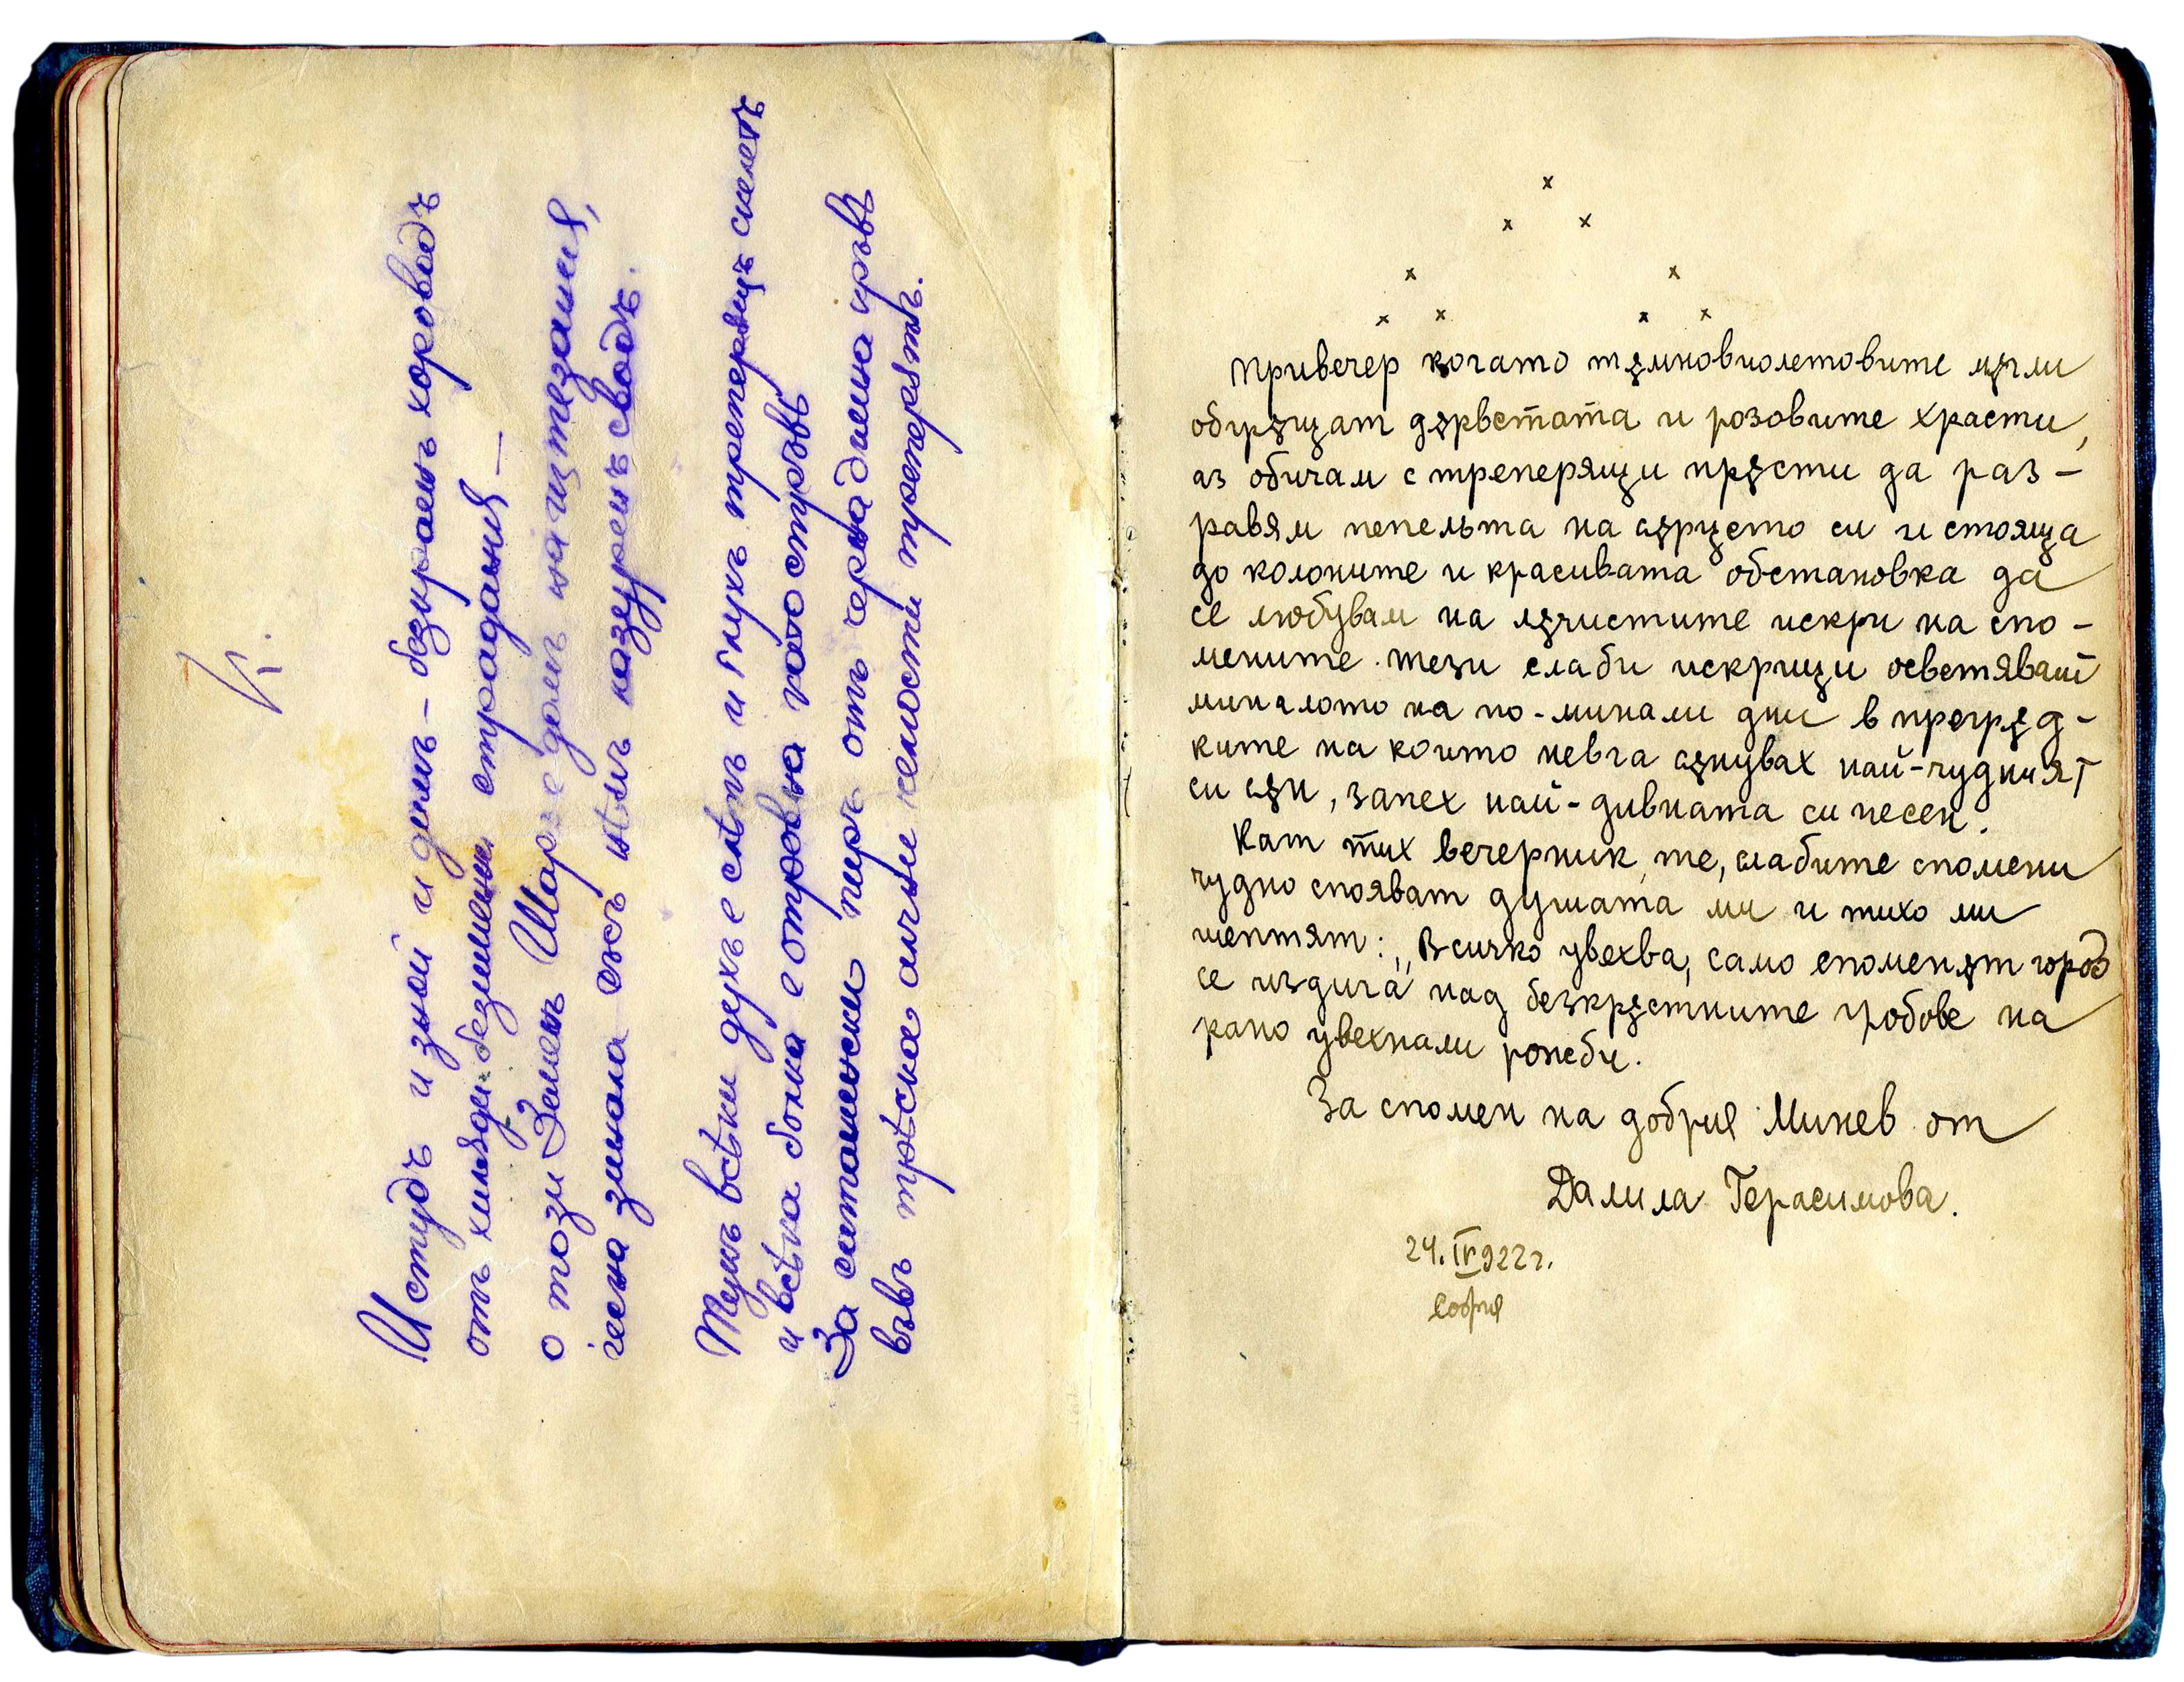 V.
И студъ и зной и денъ – безкраенъ хороводъ
отъ хиляди безименни страдания –
о този Земенъ Шаръ е домъ на изтезания,
чиена зинала съсъ нѣмъ назуренъ сводъ.
Тукъ всѣки духъ е слѣпъ и глухъ трепервщъ скелетъ
и всѣка болка е отровна като стрѣвь
За сатанински пиръ отъ черна димна кръвь
въвъ трѣска ангели челюсти треперятъ.
x
x x
x x
x x x x
Привечер когато тѫмновиолетовите мѫгли
обгрѫщат дѫрветата и розовите храсти,
аз обичам с треперящи прѫсти да раз-
равям пепельта на сѫрцето си и стояща
до колоните и красивата обстановка да
се любувам на лѫчистите искри на спо-
мените. тези слаби искрици осветяват
миналото на по-минали дни в прегрѫд-
ките на които невга сѫнувах най-чудният
си сѫн, запех най-дивната си песен.
Кат тих вечерник, те, слабите спомени
чудно спояват душата ми и тихо ми
шептят: „Всичко увехва, само споменѫт горд
се издига“ над безкрѫстните гробове на
рано увехнали рожби.
За спомен на добрия Минев от
Далила Герасимова.
24. IV 922 г.
София